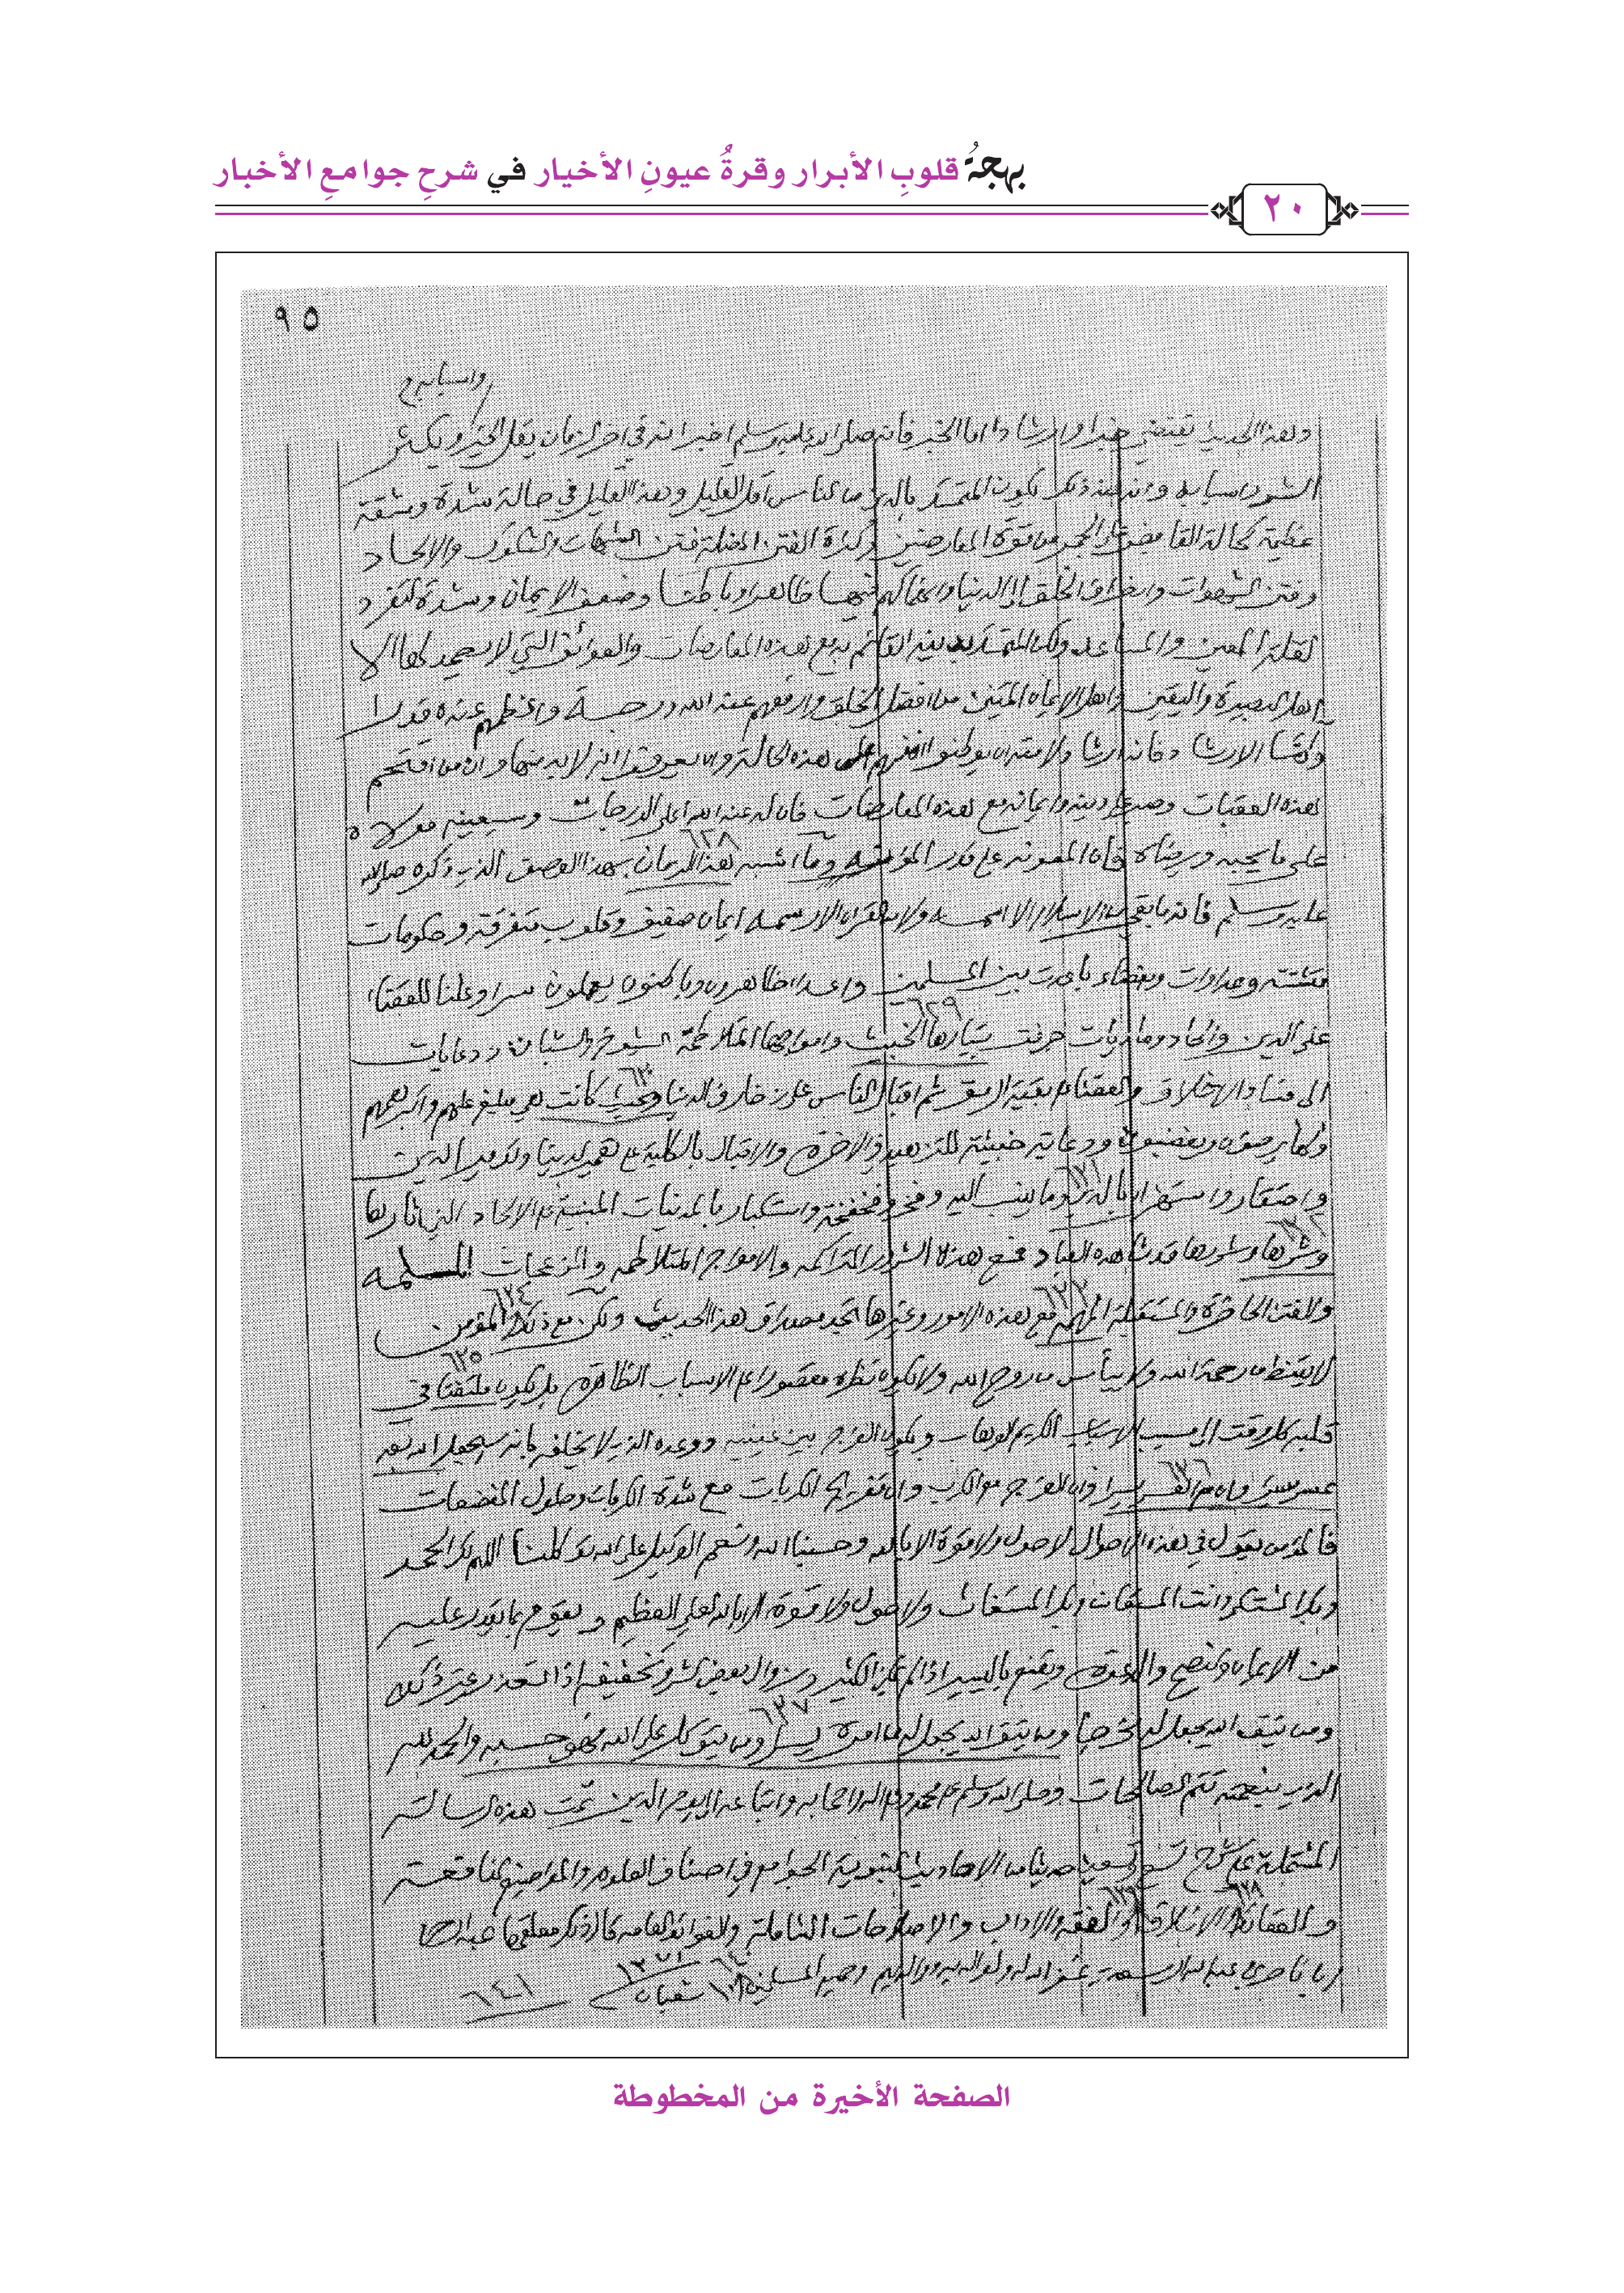 بهجةُ قلوبِ الأبرار وقرةُ عيونِ الأخيار في شرحِ جوامعِ الأخبار
٢٠
٩٥
واسبابه
وهذا الحديث يقتضي خبرا وارشادا اما الخبر فانه صلى الله عليه وسلم اخبر انه في اخر الزمان يقل الخير ويكثر
الشر واسبابه وانه عند ذلك يكون المتمسك بالدين من الناس اقل القليل وهذا القليل في حالة شدة ومشقة
عظيمة كحالة القابض على الجمر من قوة المعارضين وكثرة الفتن المضلة فتن الشبهات والشكوك والالحاد
وفتن الشهوات وانصراف الخلق الى الدنيا وانهماكهم فيها ظاهرا وباطنا وضعف الايمان وشدة التفرد
لقلة المعين والمساعد ولكن المتمسك بدينه القائم بدفع هذه المعارضات والعوائق التي لا يصمد لها الا
اهل البصيرة واليقين واهل الايمان المتين من افضل الخلق وارفعهم عند الله درجة واعظمهم عنده قدرا
واما الارشاد فانه ارشاد لامته ان يوطنوا انفسهم على هذه الحالة وان يعرفوا انه لا بد منها وان من اقتحم
هذه العقبات وصبر على دينه وايمانه مع هذه المعارضات فان له عند الله اعلى الدرجات وسيعينه مولاه
على ما يحبه ويرضاه فان المعونة على قدر المؤنة وما اشبه هذا الزمان بهذا الوصف الذي ذكره صلى الله
عليه وسلم فانه ما بقي من الاسلام الا اسمه ولا من القران الا رسمه ايمان ضعيف وقلوب متفرقة وحكومات
متشتتة وعداوات وبغضاء باعدت بين المسلمين واعداء ظاهرون وباطنون يعملون سرا وعلنا للقضاء
على الدين والحاد وماديات جرفت بتيارها الخبيث وامواجها المتلاطمة الشيوخ والشبان ودعايات
الى فساد الاخلاق والقضاء على بقية الرمق ثم اقبال الناس على زخارف الدنيا بحيث كانت هي مبلغ علمهم واكبر همهم
ولها يرضون ويغضبون ودعاية خبيثة للتزهيد في الاخرة والاقبال بالكلية على تعمير الدنيا وتدمير الدين
واحتقار واستهزاء بالدين وما ينسب اليه وفخر وفخفخة واستكبار بالمدنيات المبنية على الالحاد التي اثارها
وشرها وشررها قد شاهده العباد فمع هذه الشرور المتراكمة والامواج المتلاطمة والمزعجات الملمة
والفتن الحاضرة والمستقبلة المدلهمة مع هذه الامور وغيرها تجد مصداق هذا الحديث ولكن مع ذلك فالمؤمن
لا يقنط من رحمة الله ولا ييأس من روح الله ولا يكون نظره مقصورا على الاسباب الظاهرة بل يكون ملتفتا في
قلبه كل وقت الى مسبب الاسباب الكريم الوهاب ويكون الفرج بين عينيه ووعده الذي لا يخلفه بانه سيجعل الله بعد
عسر يسرا وان مع العسر يسرا وان الفرج مع الكرب وان تفريج الكربات مع شدة الكربات وحلول المفضعات
فالمؤمن يقول في هذه الاحوال لا حول ولا قوة الا بالله وحسبنا الله ونعم الوكيل على الله توكلنا اللهم لك الحمد
واليك المشتكى وانت المستعان وبك المستغاث ولا حول ولا قوة الا بالله العلي العظيم ويقوم بما يقدر عليه
من الايمان والنصح والدعوة ويقنع باليسير اذا لم يمكن الكثير وبزوال بعض الشر وتخفيفه اذا تعذر غير ذلك
ومن يتق الله يجعل له مخرجا ومن يتق الله يجعل له من امره يسرا ومن يتوكل على الله فهو حسبه والحمد لله
الذي بنعمته تتم الصالحات وصلى الله وسلم على محمد وعلى اله واصحابه واتباعه الى يوم الدين تمت هذه الرسالة
المشتملة على شرح تسع وتسعين حديثا من الاحاديث النبوية الجوامع في اصناف العلوم والمواضيع النافعة
والعقائد والاخلاق والفقه والاداب والاصلاحات الشاملة والفوائد العامة قال ذلك معلقها عبد الرحمن
بن ناصر بن عبد الله السعدي غفر الله له ولوالديه ووالديهم وجميع المسلمين ١٠ شعبان ١٣٧١
٦٤٠١
الصفحة الأخيرة من المخطوطة